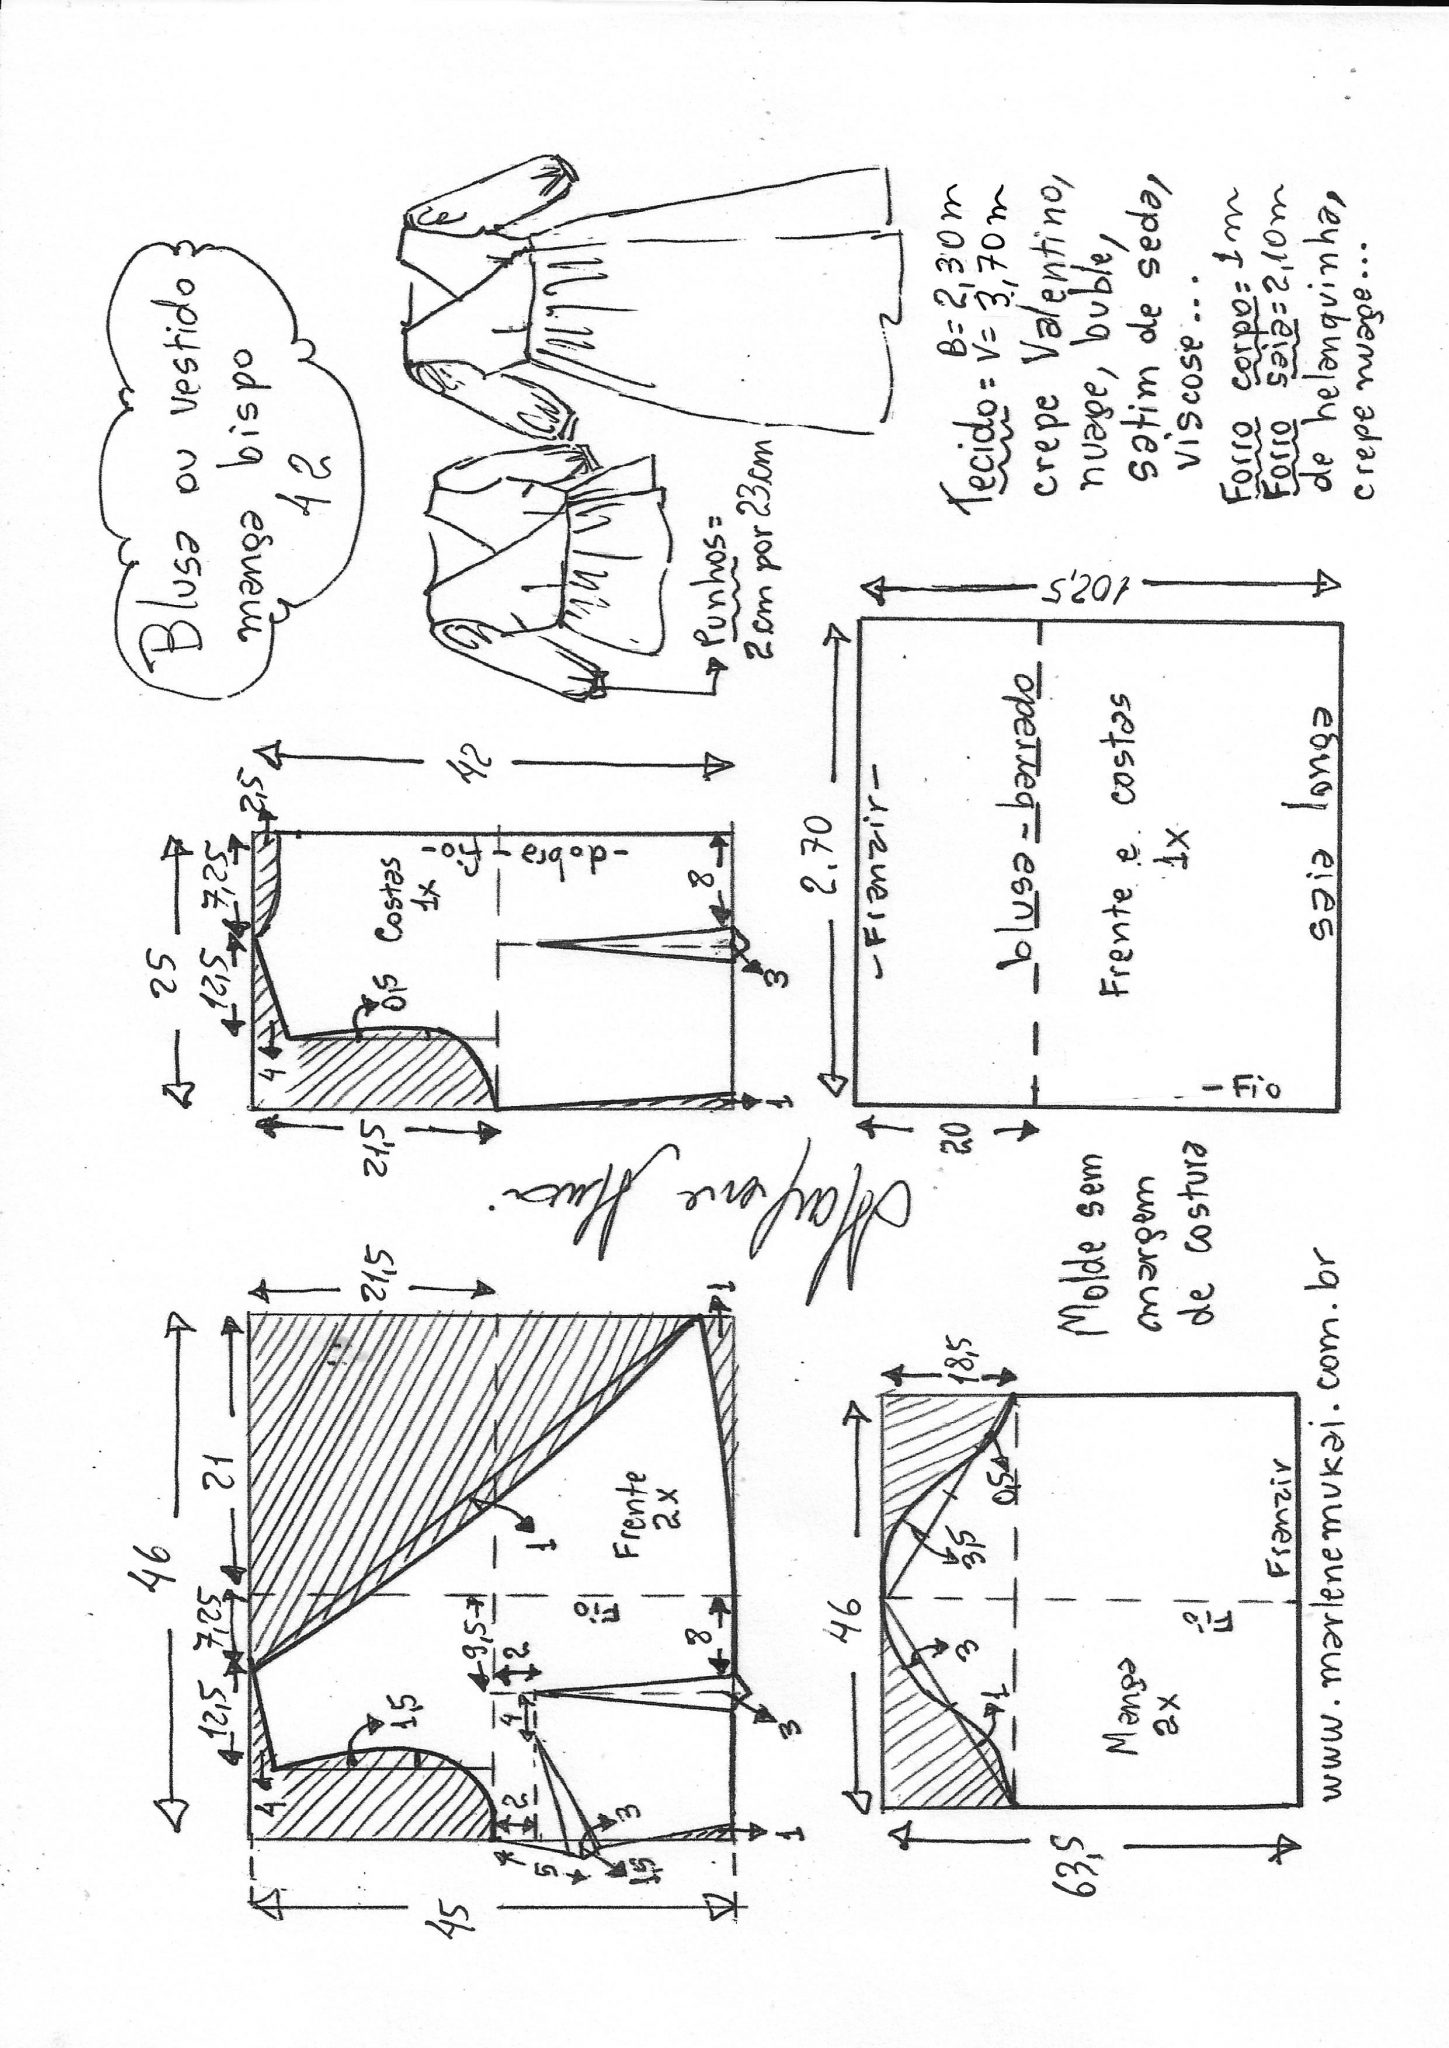 Blusa ou vestido
manga bispo
42
Punhos=
2cm por 23cm
Tecido= B=2,30m
V=3,70m
crepe Valentino,
nuage, buble,
satim de seda,
viscose...
Forro corpo=1m
Forro saia=2,10m
de helanquinha,
crepe nuage...
46
12,5
7,25
21
4
1,5
21,5
45
1
9,5
2
4
2
5
3
1,5
Fio
Frente
2x
8
3
1
1
25
12,5
7,25
2,5
4
0,5
Costas
1x
-Fio
-dobra-
21,5
42
8
3
1
46
18,5
3
1
3,5
0,5
Manga
2x
Fio
Franzir
63,5
2.70
-Franzir-
20
blusa-barrado
Frente e costas
1x
Fio
saia longa
102,5
Molde sem
margem
de costura
www.marlenemukai.com.br